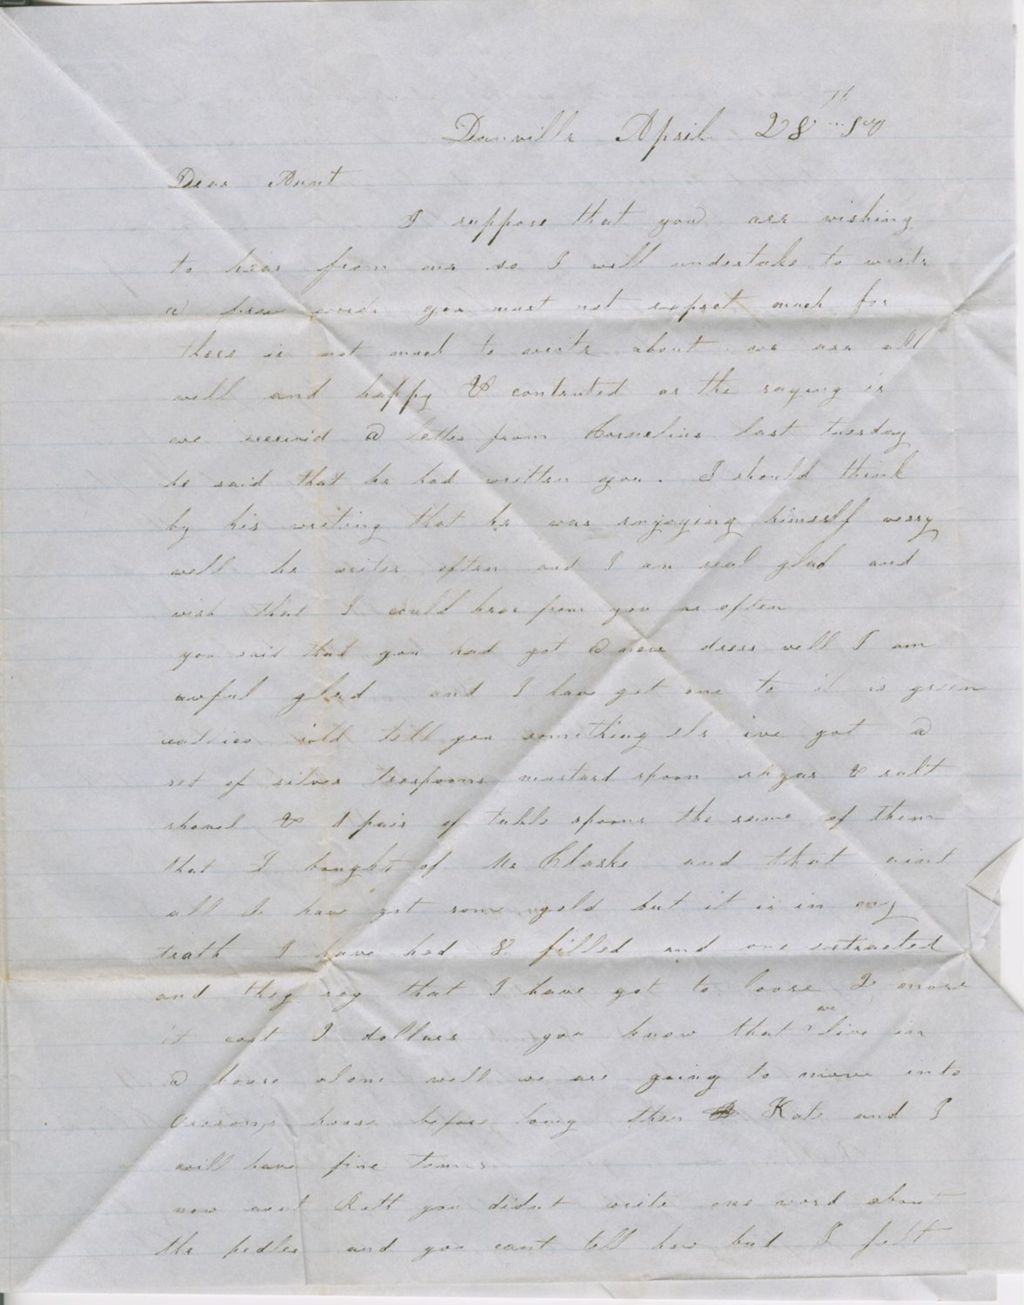 Danville April 28th
Dear Aunt
I suppose that you are wishing
to hear from me so I will undertake to write
a few words you must not expect much for
there is not much to write about we are all
well and happy & contented as the saying is
we received a letter from Cornelius last tuesday
he said that he had written you. I should think
by his writing that he was enjoying himself verry
well he writes often and I am real glad and
wish that I could hear from you as often
you said that you had got a new dress well I am
awful glad and I have got one to it is green
tell you something els ive got a
set of silver teaspoons mustard spoon shugar & salt
shovel & 1 pair of table spoons the same of them
that I bought of Mr Clarke and that aint
all I have got some gold but it is in my
teath I have had 8 filled and one extracted
and they say that I have got to loose 2 more
it cost dollars you know that we live in
a house alone well we are going to move into
house before long then Kate and I
will have fine times
now aunt you didnt write one word about
the pedler and you cant tell how bad I felt